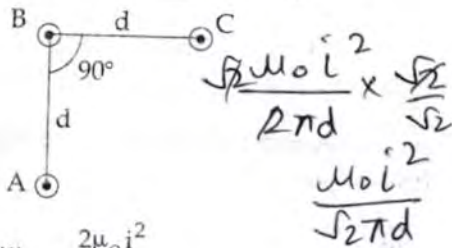 B d C
90°
d
A
√2 μ₀ i² / 2πd × √2 / √2
μ₀ i² / √2 πd
2μ₀ i²